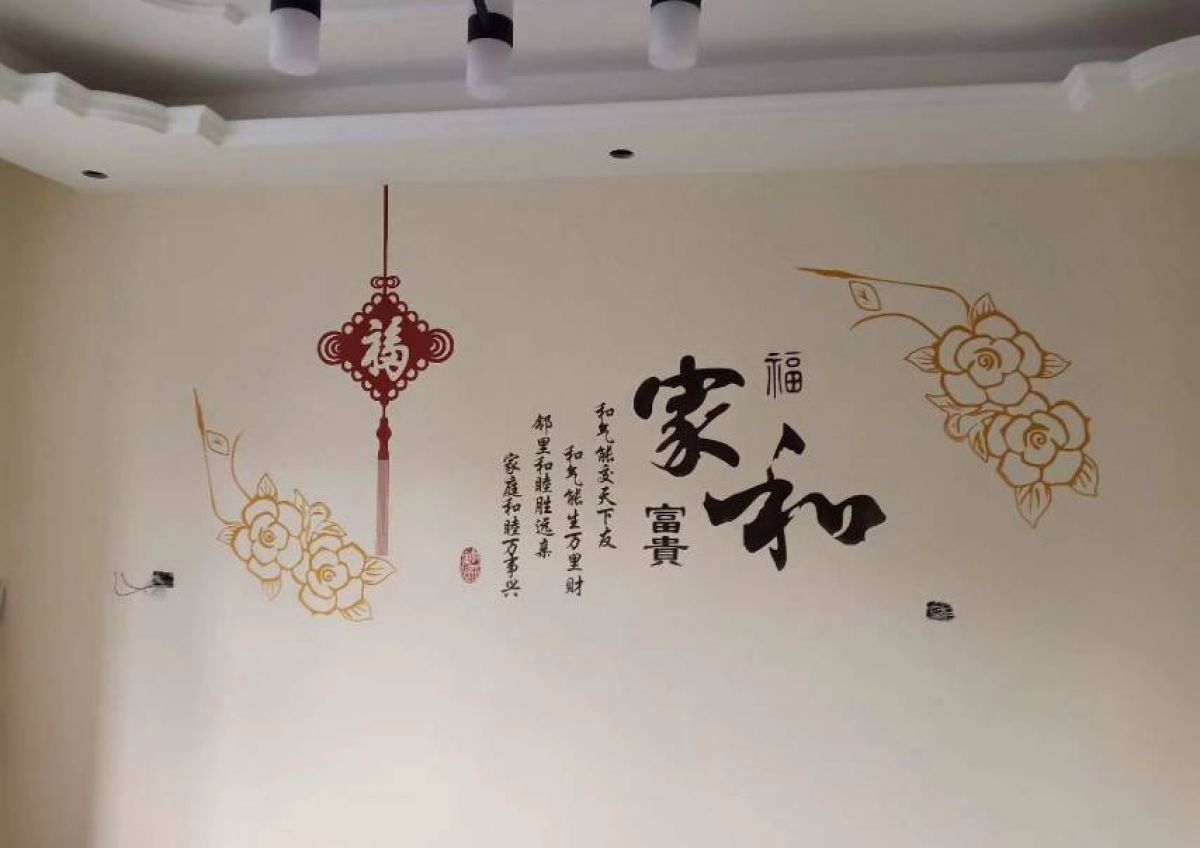 福
家和
富貴
和气能交天下友
和气能生万里财
邻里和睦胜远亲
家庭和睦万事兴
福